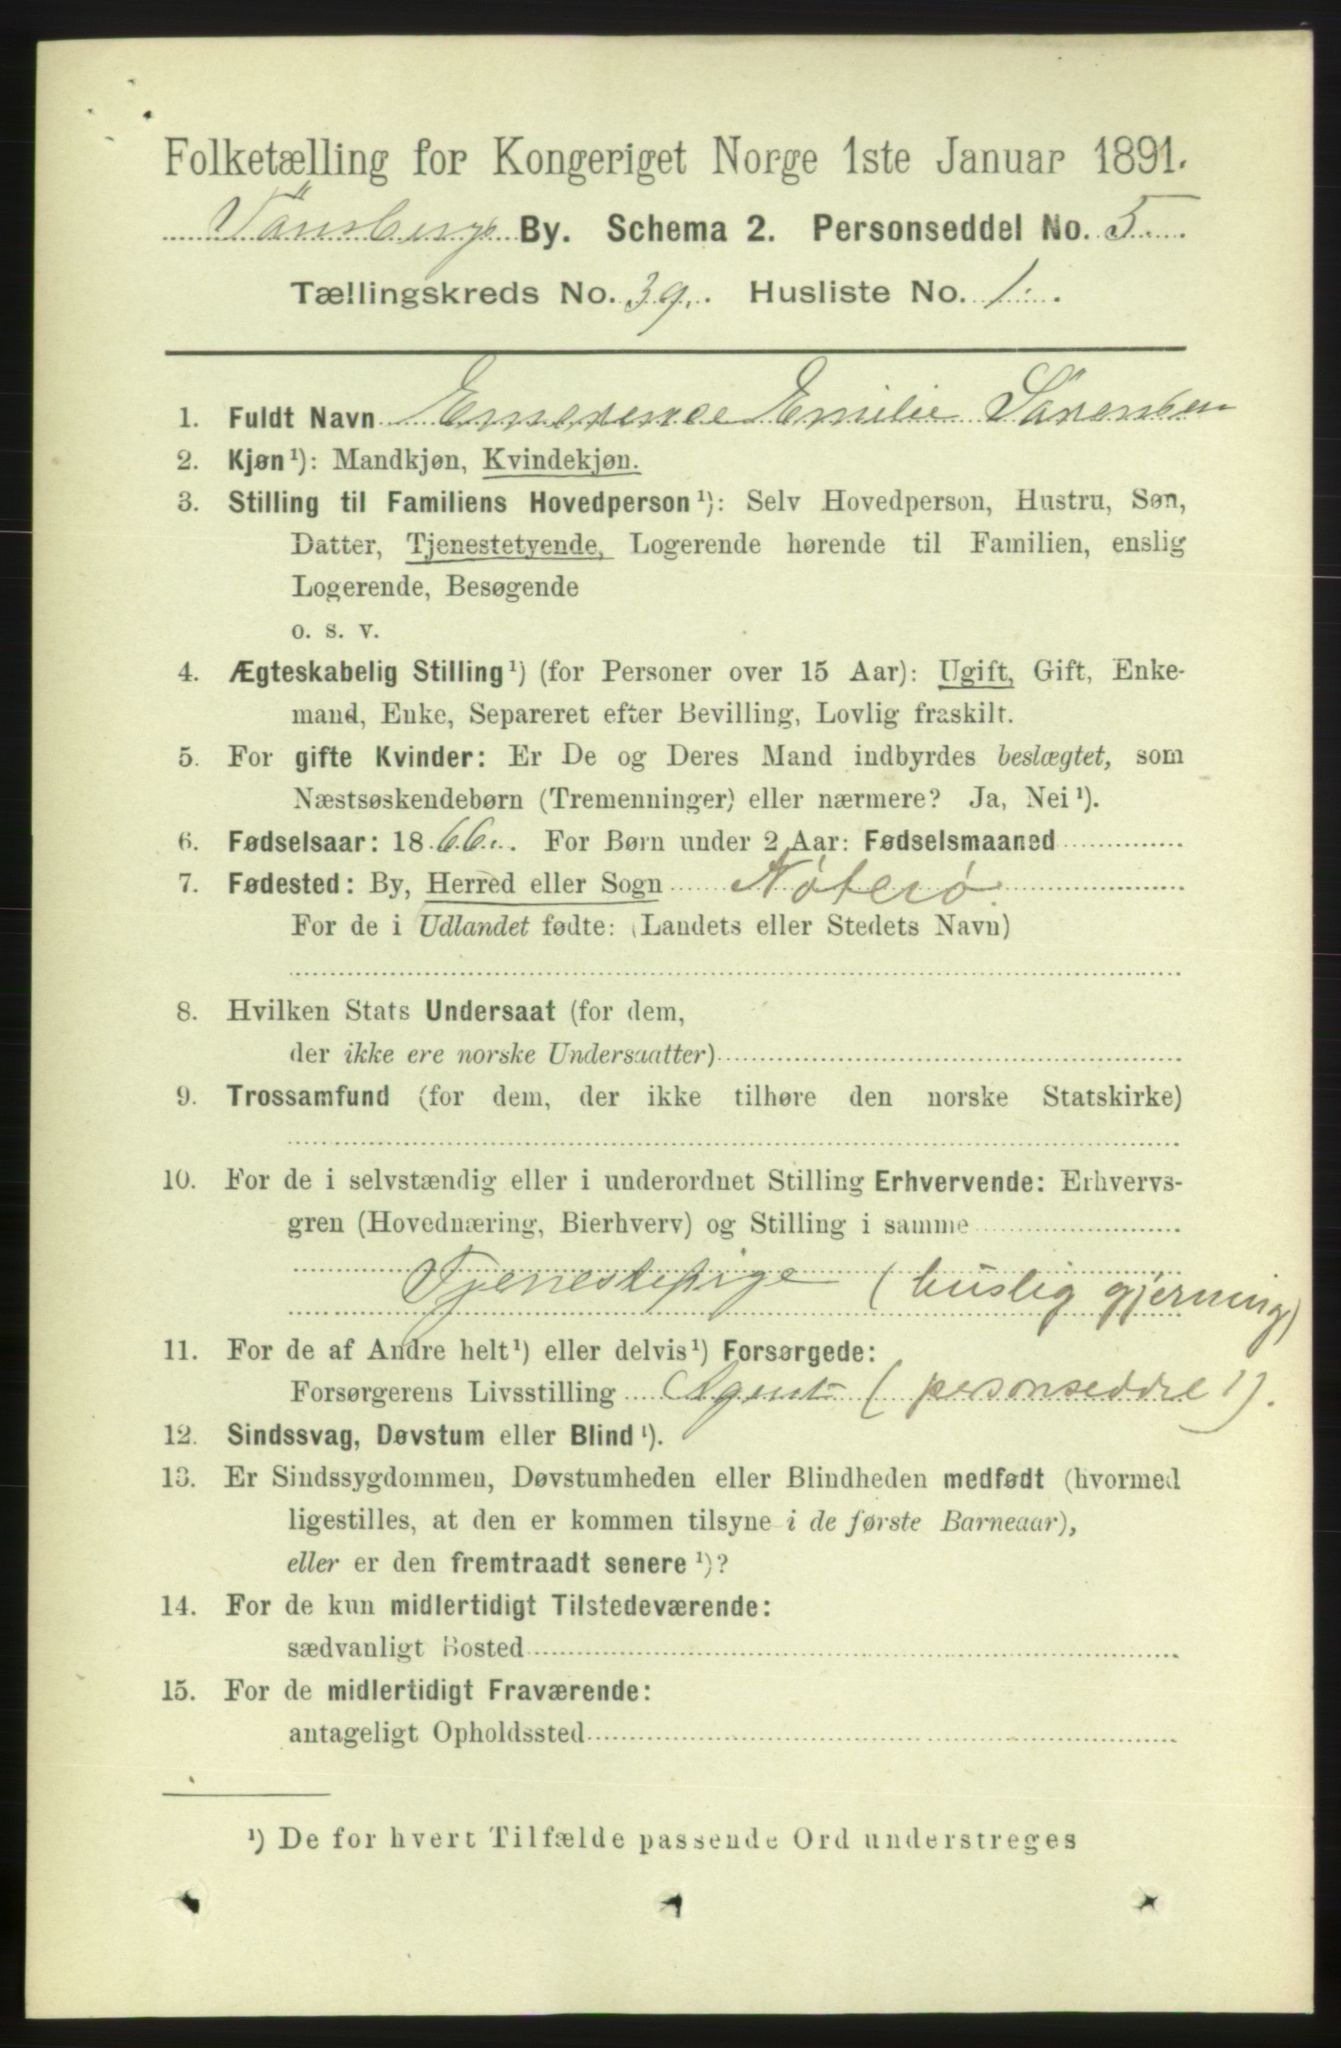 Folketælling for Kongeriget Norge 1ste Januar 1891.
Tönsberg By. Schema 2. Personseddel No. 5
Tællingskreds No. 39. Husliste No. 1.
1. Fuldt Navn Emerence Emilie Sörensen
2. Kjøn¹): Mandkjøn, Kvindekjøn.
3. Stilling til Familiens Hovedperson¹): Selv Hovedperson, Hustru, Søn,
Datter, Tjenestetyende, Logerende hørende til Familien, enslig
Logerende, Besøgende
o. s. v.
4. Ægteskabelig Stilling¹) (for Personer over 15 Aar): Ugift, Gift, Enke-
mand, Enke, Separeret efter Bevilling, Lovlig fraskilt.
5. For gifte Kvinder: Er De og Deres Mand indbyrdes beslægtet, som
Næstsøskendebørn (Tremenninger) eller nærmere? Ja, Nei¹).
6. Fødselsaar: 1866. For Børn under 2 Aar: Fødselsmaaned
7. Fødested: By, Herred eller Sogn Nöterö.
For de i Udlandet fødte: (Landets eller Stedets Navn)
8. Hvilken Stats Undersaat (for dem,
der ikke ere norske Undersaatter)
9. Trossamfund (for dem, der ikke tilhøre den norske Statskirke)
10. For de i selvstændig eller i underordnet Stilling Erhvervende: Erhvervs-
gren (Hovednæring, Bierhverv) og Stilling i samme
Tjenestepige (huslig gjerning)
11. For de af Andre helt¹) eller delvis¹) Forsørgede:
Forsørgerens Livsstilling Agent (personseddel 1).
12. Sindssvag, Døvstum eller Blind¹).
13. Er Sindssygdommen, Døvstumheden eller Blindheden medfødt (hvormed
ligestilles, at den er kommen tilsyne i de første Barneaar),
eller er den fremtraadt senere¹)?
14. For de kun midlertidigt Tilstedeværende:
sædvanligt Bosted
15. For de midlertidigt Fraværende:
antageligt Opholdssted
¹) De for hvert Tilfælde passende Ord understreges